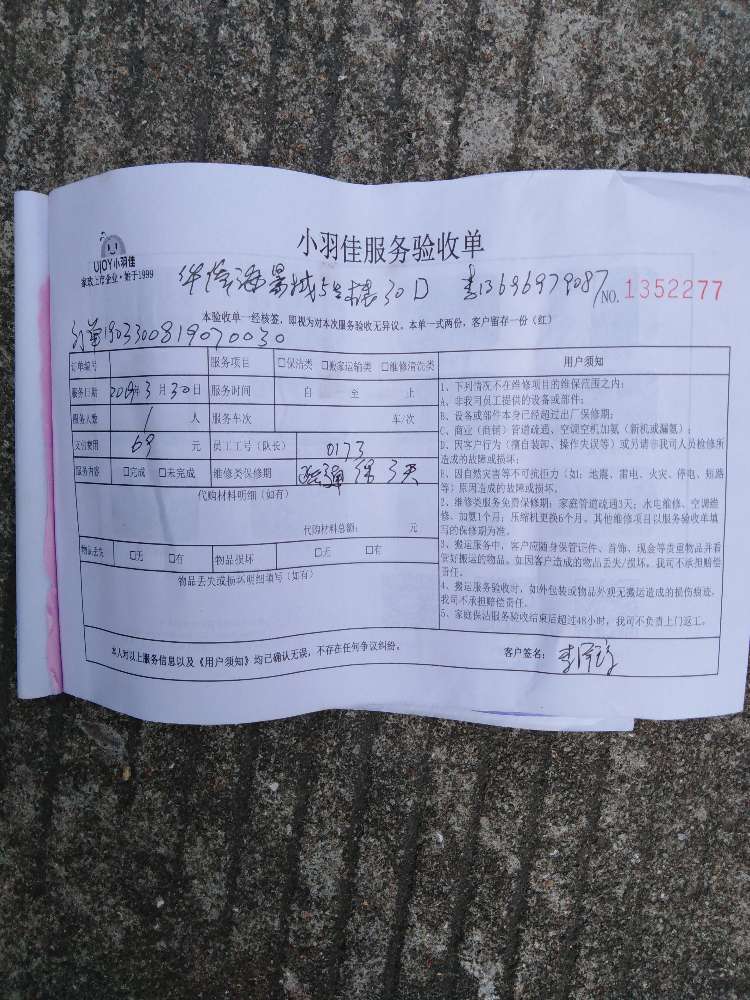 小羽佳服务验收单
UJOY小羽佳
家政上市企业·始于1999
海景城5号楼30D 李13696979087 NO.1352277
本验收单一经核签，即视为对本次服务验收无异议。本单一式两份，客户留存一份（红）
订单1903300819070030
订单编号 服务项目 □保洁类 □搬家运输类 □维修清洗类
服务日期 2019年3月30日 服务时间 自 至 止
服务人数 1 人 服务车次 车/次
支付费用 69 元 员工工号（队长） 0173
服务内容 □完成 □未完成 维修类保修期 保3天
代购材料明细（如有）
代购材料总额： 元
物品丢失 □无 □有 物品损坏 □无 □有
物品丢失或损坏明细填写（如有）
用户须知
1、下列情况不在维修项目的维保范围之内：
A、非我司员工提供的设备或部件；
B、设备或部件本身已经超过出厂保修期；
C、商业（商铺）管道疏通、空调空机加氨（新机或漏氨）；
D、因客户行为（擅自装卸、操作失误等）或另请非我司人员检修所
造成的故障或损坏；
E、因自然灾害等不可抗拒力（如：地震、雷电、火灾、停电、短路
等）原因造成的故障或损坏。
2、维修类服务免费保修期：家庭管道疏通3天；水电维修、空调维
修、加氨1个月；压缩机更换6个月。其他维修项目以服务验收单填
写的保修期为准。
3、搬运服务中，客户应随身保管证件、首饰、现金等贵重物品并看
管好搬运的物品。如因客户造成的物品丢失/损坏，我司不承担赔偿
责任。
4、搬运服务验收时，如外包装或物品外观无搬运造成的损伤痕迹，
我司不承担赔偿责任。
5、家庭保洁服务验收结束后超过48小时，我司不负责上门返工。
本人对以上服务信息以及《用户须知》均已确认无误，不存在任何争议纠纷。 客户签名：